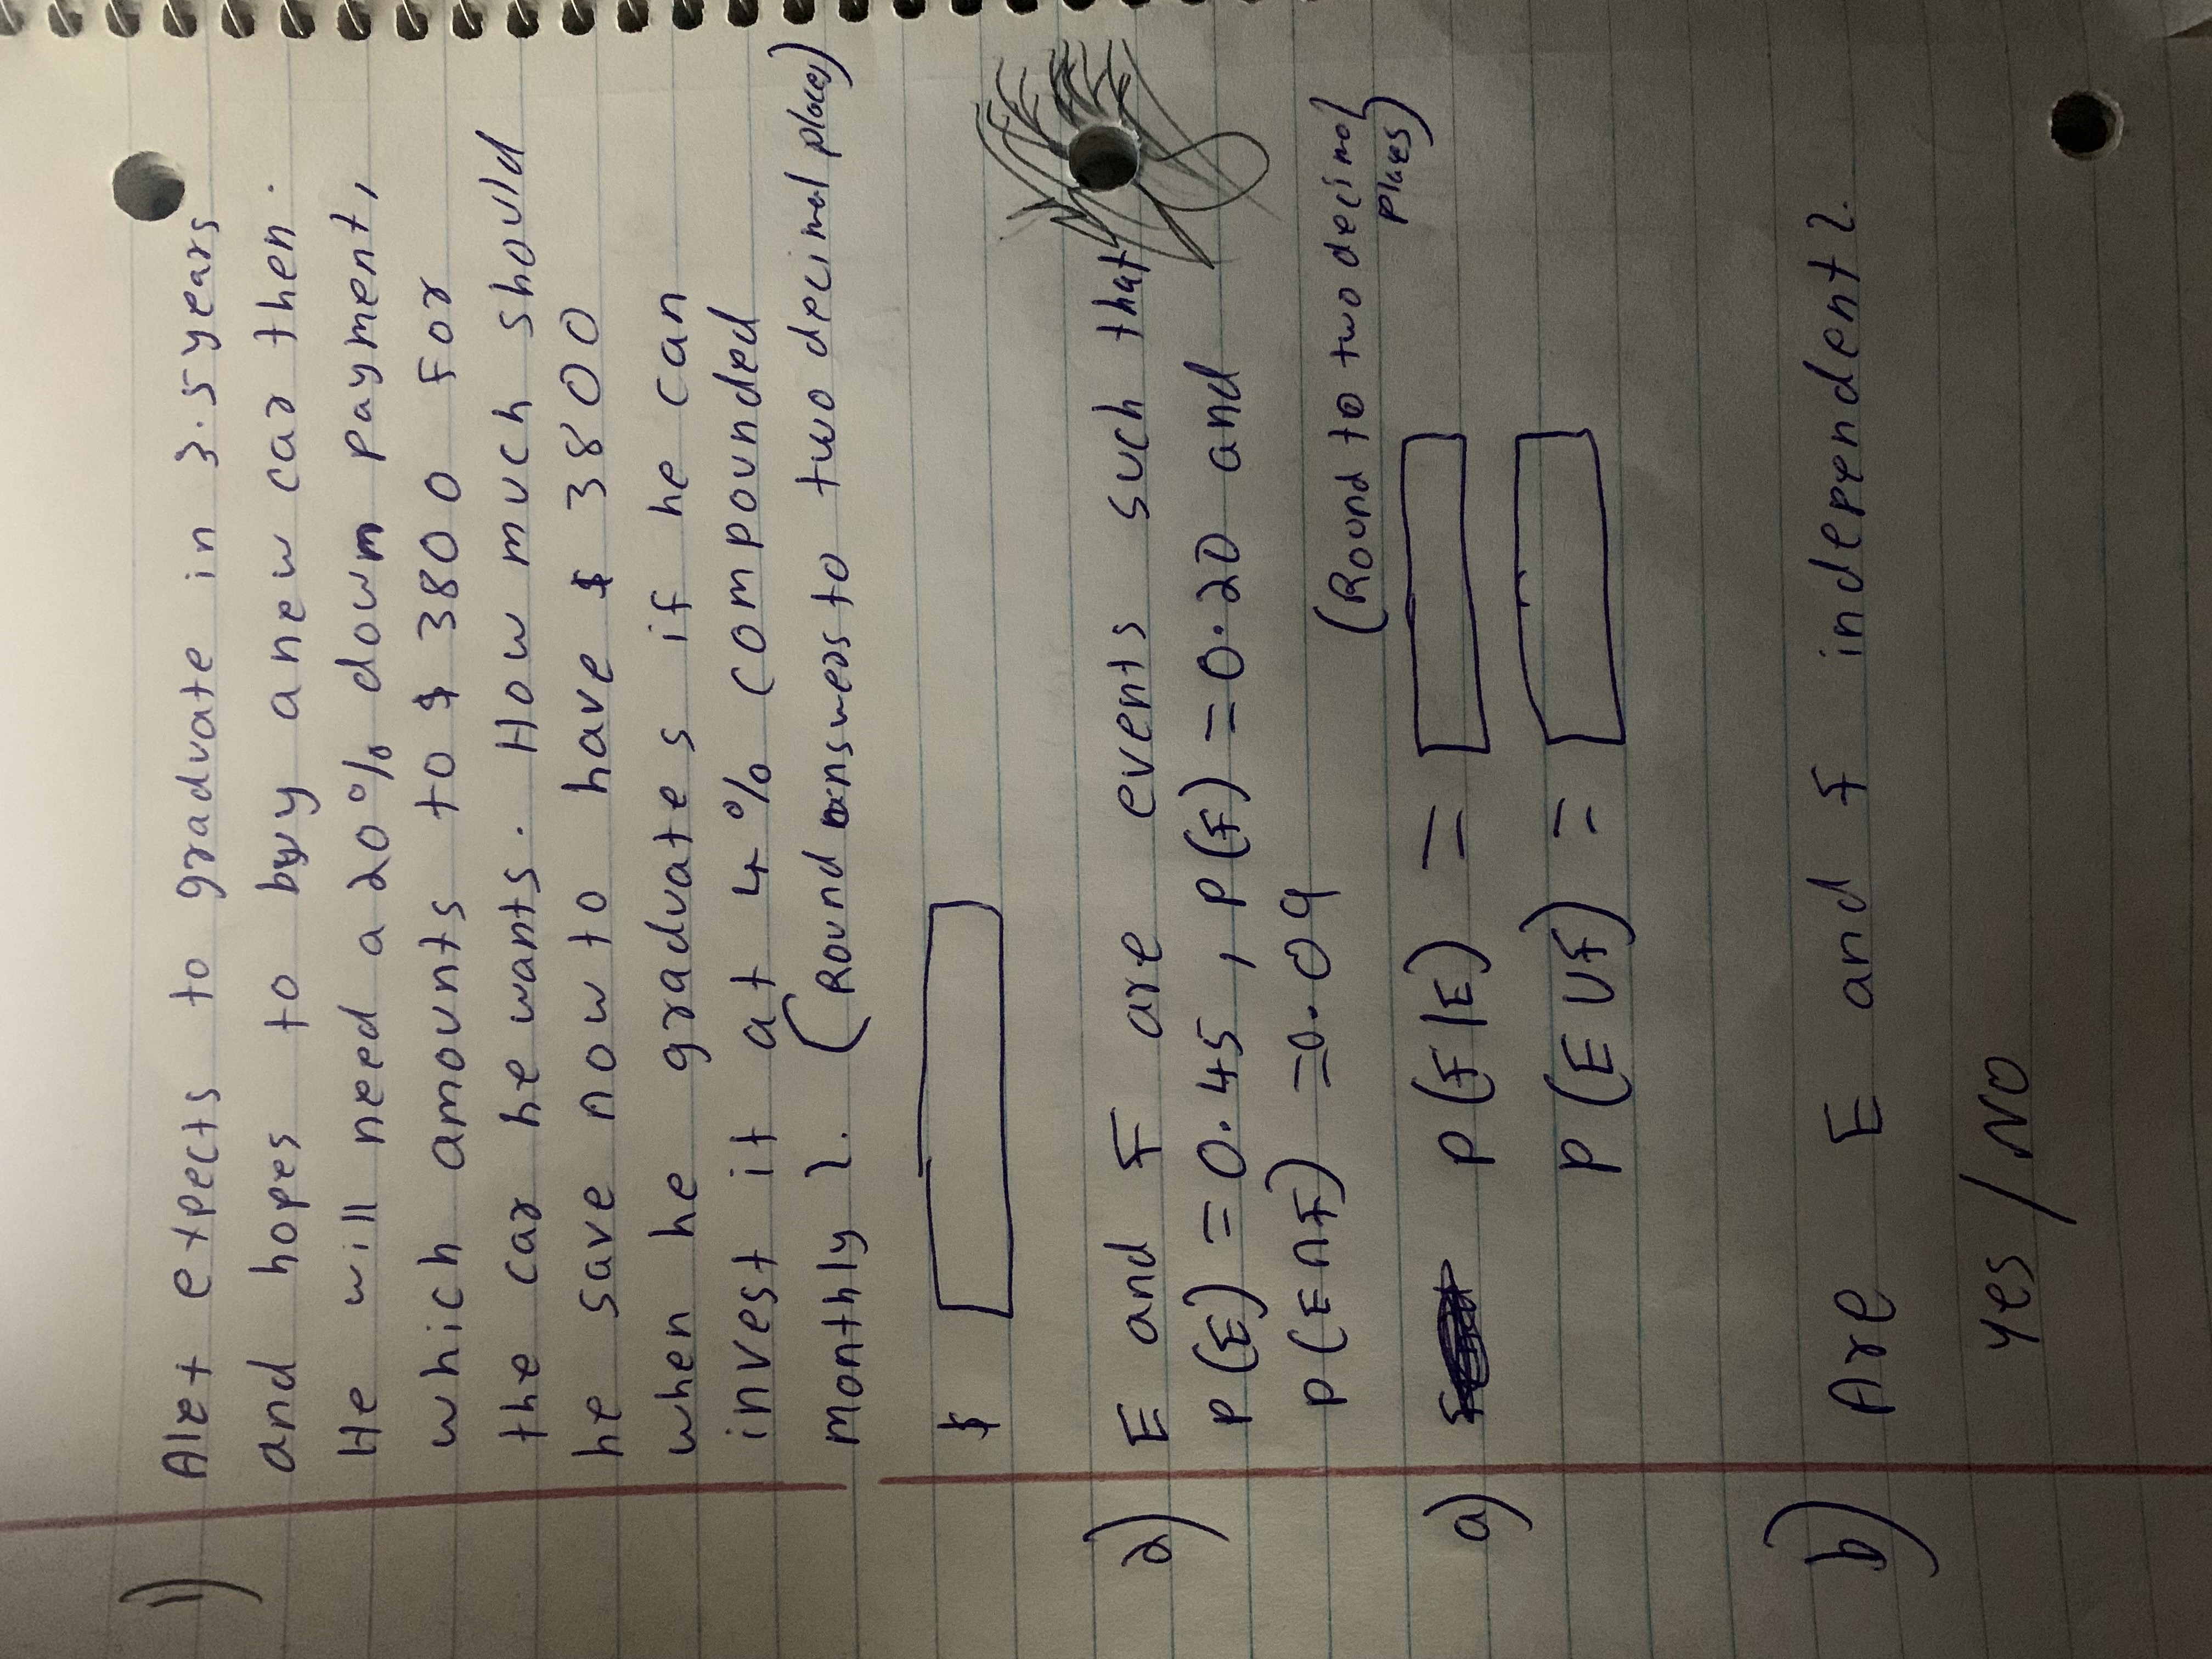 1) Alex expects to graduate in 3.5 years
and hopes to buy a new car then.
He will need a 20% down payment,
which amounts to $ 3800 for
the car he wants. How much should
he save now to have $ 3800
when he graduates if he can
invest it at 4% compounded
monthly ?. (Round answers to two decimal places)
$
2) E and F are events such that
P(E) = 0.45, P(F) = 0.20 and
P(E∩F) = 0.09
(Round to two decimal
places)
a) P(F|E) =
P(E∪F) =
b) Are E and F independent?
Yes / No